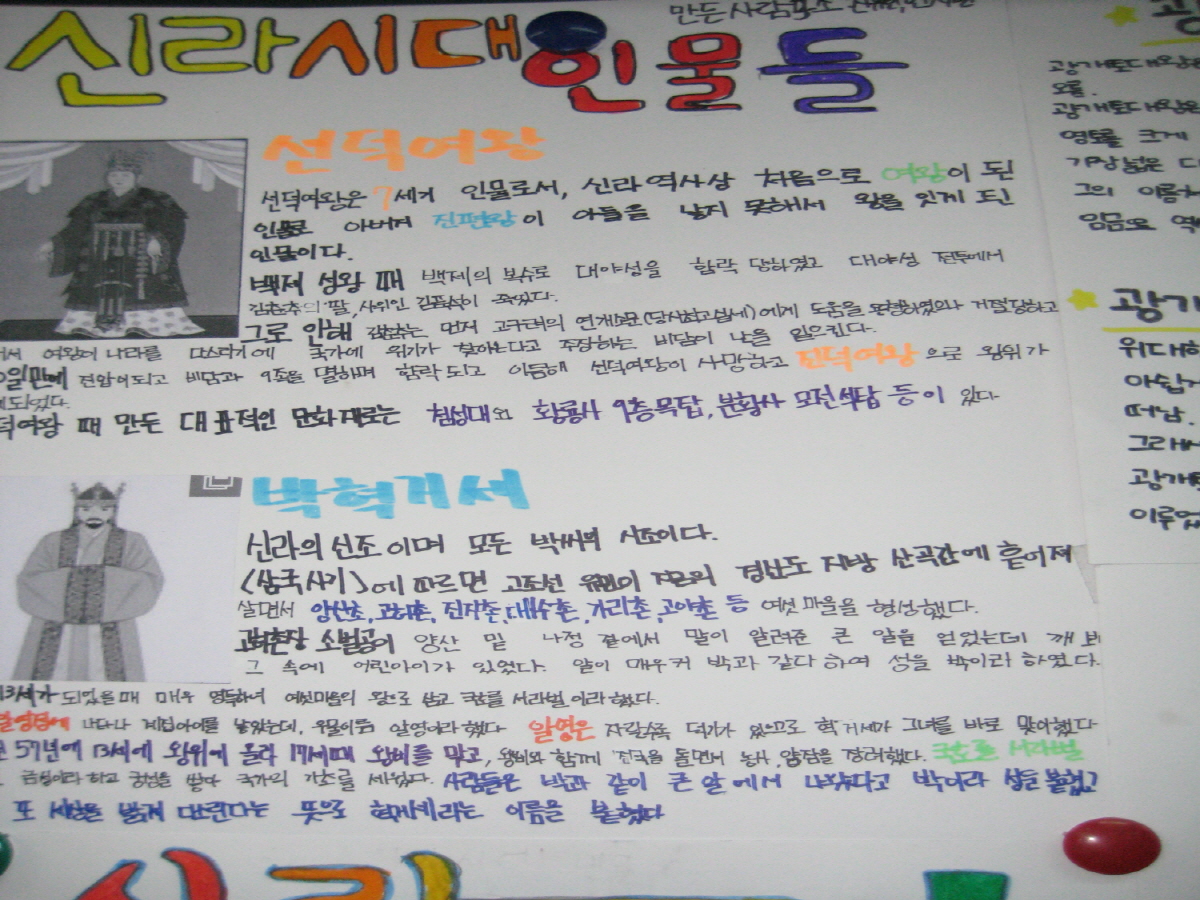 만든사람
신라시대 인물들
선덕여왕
선덕여왕은 7세기 인물로서, 신라 역사상 처음으로 여왕이 된
인물로 아버지 진평왕이 아들을 낳지 못해서 왕을 잇게 되신
인물이다.
백제 성왕 때 백제의 복수로 대야성을 함락 당하였고 대야성 전투에서
김춘추의 딸, 사위인 김품석이 죽었다.
그로 인해 김춘추는 먼저 고구려의 연개소문(당시최고실세)에게 도움을 요청하였으나 거절당하고
여왕이 나라를 다스리기에 국가에 위기가 찾아온다고 주장하는 비담이 난을 일으킨다.
진압이되고 비담과 9족을 멸하며 함락되고 이듬해 선덕여왕이 사망하고 진덕여왕으로 왕위가
되었다.
덕여왕 때 만든 대표적인 문화재로는 첨성대와 황룡사 9층목탑, 분황사 모전석탑 등이 있다
박혁거세
신라의 선조이며 모든 박씨의 시조이다.
(삼국사기)에 따르면 고조선 유민이 지금의 경상도 지방 산곡간에 흩어져
살면서 양산촌, 고허촌, 진지촌, 대수촌, 가리촌, 고야촌 등 여섯 마을을 형성했다.
고허촌장 소벌공이 양산 밑 나정 곁에서 말이 알려준 큰 알을 얻었는데 깨보
그 속에 어린아이가 있었다. 알이 매우커 박과 같다하여 성을 박이라 하였다.
13세가 되었을때 매우 영특하여 여섯마을의 왕으로 삼고 국호를 서라벌이라 했다.
알영정에 나타나 계집아이를 낳았는데, 우물이름 알영이라했다 알영은 자랄수록 덕기가 있으므로 혁거세가 그녀를 바로 맞이했다
57년에 13세에 왕위에 올라 17세때 왕비를 맞고, 왕비와 함께 전국을 돌면서 농사, 양잠을 장려했다. 국호를 서라벌
금성이라 하고 궁성을 쌓아 국가의 기초를 세웠다. 사람들은 박과 같이 큰 알에서 나왔다고 박이라 성을 붙였고
또 세상을 밝게 다스린다는 뜻으로 혁거세라는 이름을 붙였다
광개토대왕은
오름.
광개토대왕은
영토를 크게
가장넓은
그의 이름
임금으로
광개
위대한
아쉽게
떠남.
그래서
광개
이루었